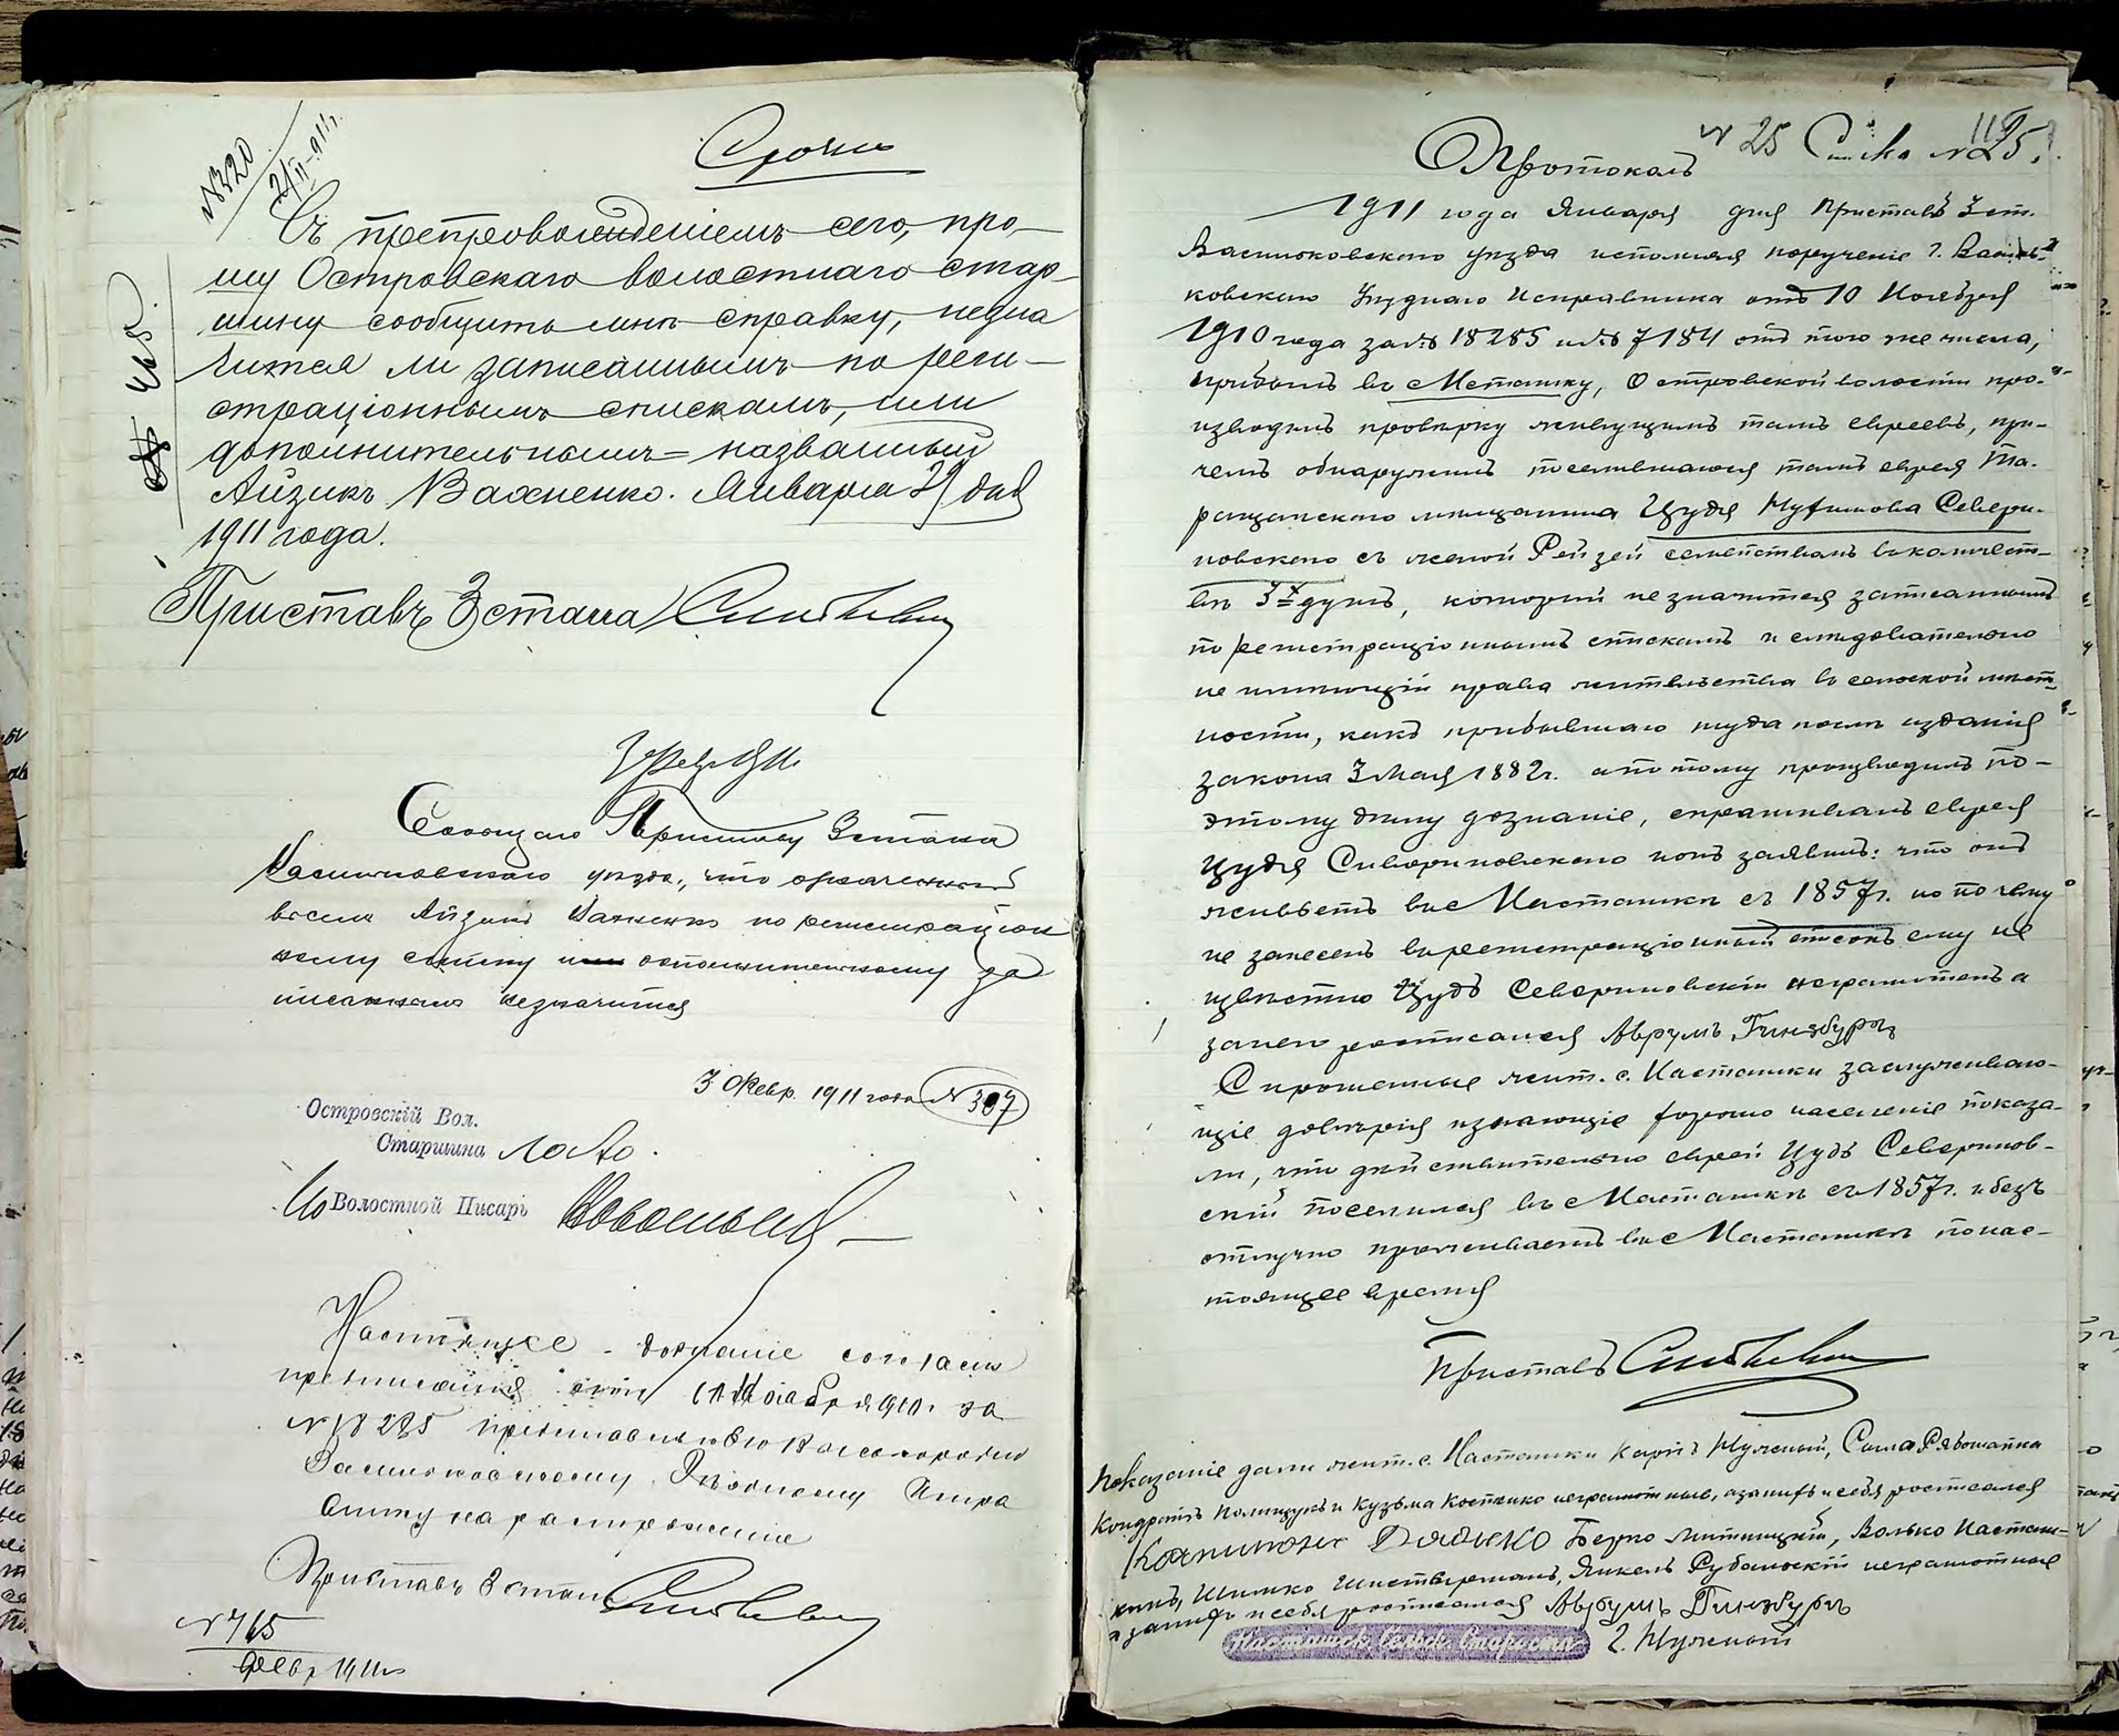 № 320
2/II 911 г.
Срочно
Съ препровожденіемъ сего, про-
шу Островскаго волостнаго стар-
шину сообщить мнѣ справку, не зна
чится ли записаннымъ по реги-
страціоннымъ спискамъ, или
дополнительнымъ = названный
Айзикъ Вахненко. Января 29 дня
1911 года.
Приставъ 3 стана
Сообщаю Приставу 3 стана
Васильковскаго уѣзда, что означенный
въ семъ Айзикъ Вахненко по регистрацион
ному списку или дополнительному за
писаннымъ не значится
3 Февр. 1911 года № 307
Островскій Вол.
Старшина
Ио Волостной Писарь
Настоящее дознаніе согласно
предписанія отъ Ноября 1910 г. за
№ 18285 представляю Его Высокородію
Васильковскому Уѣздному Испра
внику на распоряженіе
Приставъ 3 стана
№ 765
Февр 1911 г.
Протоколъ № 25
1911 года Января дня Приставъ 3 ст.
Васильковского уѣзда исполняя порученіе г. Василь-
ковскаго Уѣзднаго Исправника отъ 10 Ноября
1910 года за № 18285 и № 7184 отъ того же числа,
прибылъ въ с Насташку, Островской волости про-
изводилъ провѣрку живущимъ тамъ евреевъ, при-
чемъ обнаружилъ поселившагося тамъ еврея Та-
ращанского мѣщанина Іудя Нухимова Севери-
новского съ женой Рейзей семействомъ въ количест-
вѣ 3х душъ, который не значится записаннымъ
по регистраціоннымъ спискамъ и слѣдовательно
не имѣющій права жительства въ сельской мѣст-
ности, какъ прибывшаго туда послѣ изданія
закона 3 Мая 1882 г. а потому производилъ по-
этому дѣлу дознаніе, спрашивалъ еврея
Іудя Сивериновскаго и онъ заявилъ: что онъ
живетъ въ с Насташкѣ съ 1857 г. но почему
не занесенъ въ регистраціонный списокъ ему не
извѣстно Іудъ Севериновскій неграмотенъ а
за него росписался Аврумъ Гинзбургъ
Спрошенные жит. с. Насташки заслуживаю-
щіе довѣрія и знающіе хорошо населеніе показа-
ли, что дѣйствительно еврей Іудъ Севериновс-
скій поселился въ с Насташкѣ съ 1857 г. и безъ
отлучно проживаетъ въ с Насташкѣ по нас-
тоящее время
Приставъ
Показаніе дали жит. с. Насташки Карпъ Нужный, Сава Рябошапка
Кондратъ Полищукъ и Кузьма Костенко неграмотные, а за нихъ и себя росписался
Дяченко Берко Волько Насташ-
Шимко Янкель неграмотные
а за нихъ и себя росписался Аврумъ Гинзбургъ
Насташск. Сельск. Староста Г. Нужный